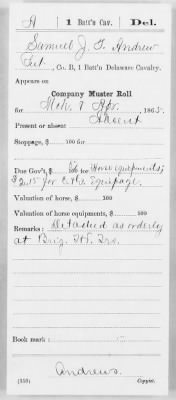 A | 1 Batt'n Cav. | Del.
Samuel J. T. Andrew
Pvt., Co. B, 1 Batt'n Delaware Cavalry.
Appears on
Company Muster Roll
for Mch. & Apr., 1865.
Present or absent Absent
Stoppage, $ 100 for
Due Gov't, $ 100 for Horse equipments;
$2.15 for C. & G. Equipage.
Valuation of horse, $ 100
Valuation of horse equipments, $ 100
Remarks: Detached as orderly
at Brig. Hd. Qrs.
Book mark:
Andrews.
(359) Copyist.